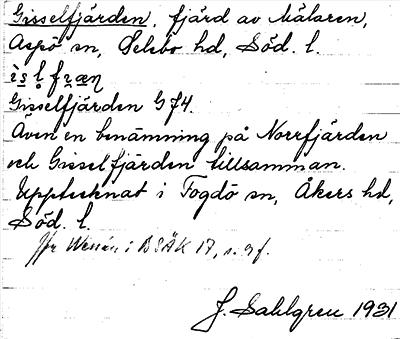 Gisselfjärden, fjärd av Mälaren,
Aspö sn, Selebo hd, Söd. l.
Gisselfjärden Gf4.
Även en benämning på Norrfjärden
och Gisselfjärden tillsamman.
Upptecknat i Fogdö sn, Åkers hd,
Söd. l.
Jfr Wenén i BSÄK 17, s. 9 f.
J. Sahlgren 1931